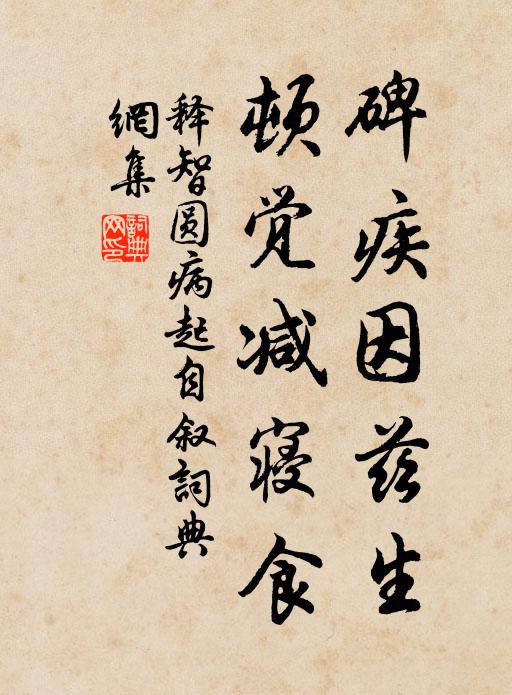 碑疾因兹生
顿觉减寝食
释智圆病起自叙詞典
網集
詞典
网印